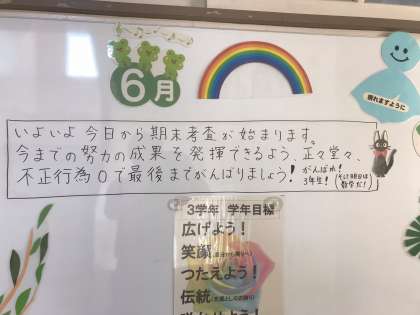 6月
晴れますように
いよいよ今日から期末考査が始まります。
今までの努力の成果を発揮できるよう、正々堂々、
不正行為0で最後までがんばりましょう!
がんばれ!
3年生!
(そして明日は
数学だ!)
3学年 学年目標
広げよう!
笑顔
つたえよう!
伝統